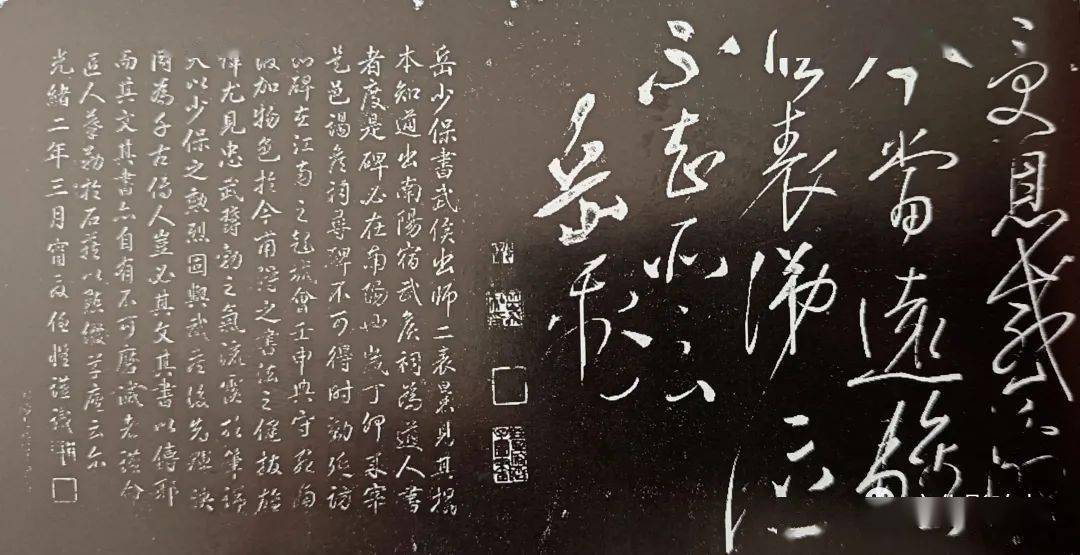 受恩感激不勝
今當遠離
臨表涕泣
不知所云
岳飛
岳少保書武侯出師二表曩見其搨
本知道出南陽宿武侯祠為道人書
者度是碑必在南陽也歲丁卯來宰
是邑謁詹祠尋碑不可得時勤延訪
以碑在江南之彭城會壬申典守宛南
加物色於今甫得之書法之健拔
繹尤見忠武鬱勃之氣流露於筆端
又以少保之勲烈固與武侯後先輝映
同為千古偉人豈必其文其書以傳耶
而其文其書亦自有不可磨滅者謹令
匠人摹勒於石藉以點綴草廬云尔
光緒二年三月甯夏任愷謹識